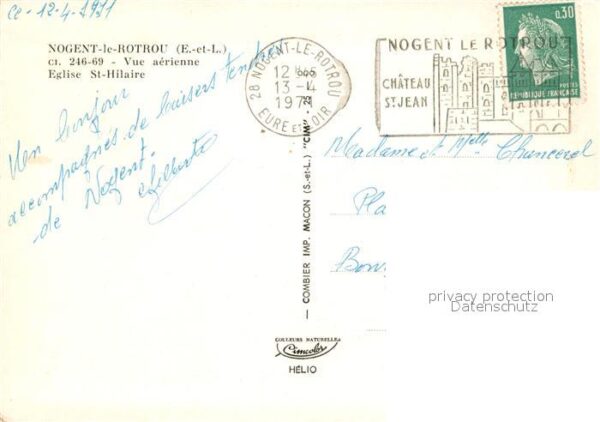 ce - 12-4-1971
NOGENT-le-ROTROU (E.-et-L.)
CI. 246-69 - Vue aérienne
Eglise St-Hilaire
Un bonjour
accompagné de baisers tendres
de Nogent.
Gilberte
28 NOGENT-LE-ROTROU
12 H
13-4
EURE et LOIR
NOGENT LE ROTROU
CHÂTEAU
ST JEAN
0,30
POSTES
REPUBLIQUE FRANÇAISE
— COMBIER IMP. MACON (S.-et-L.) "CIM"
Madame et Melle Chancerel
Pla
Bon
privacy protection
Datenschutz
COULEURS NATURELLES
Cimcolor
HÉLIO